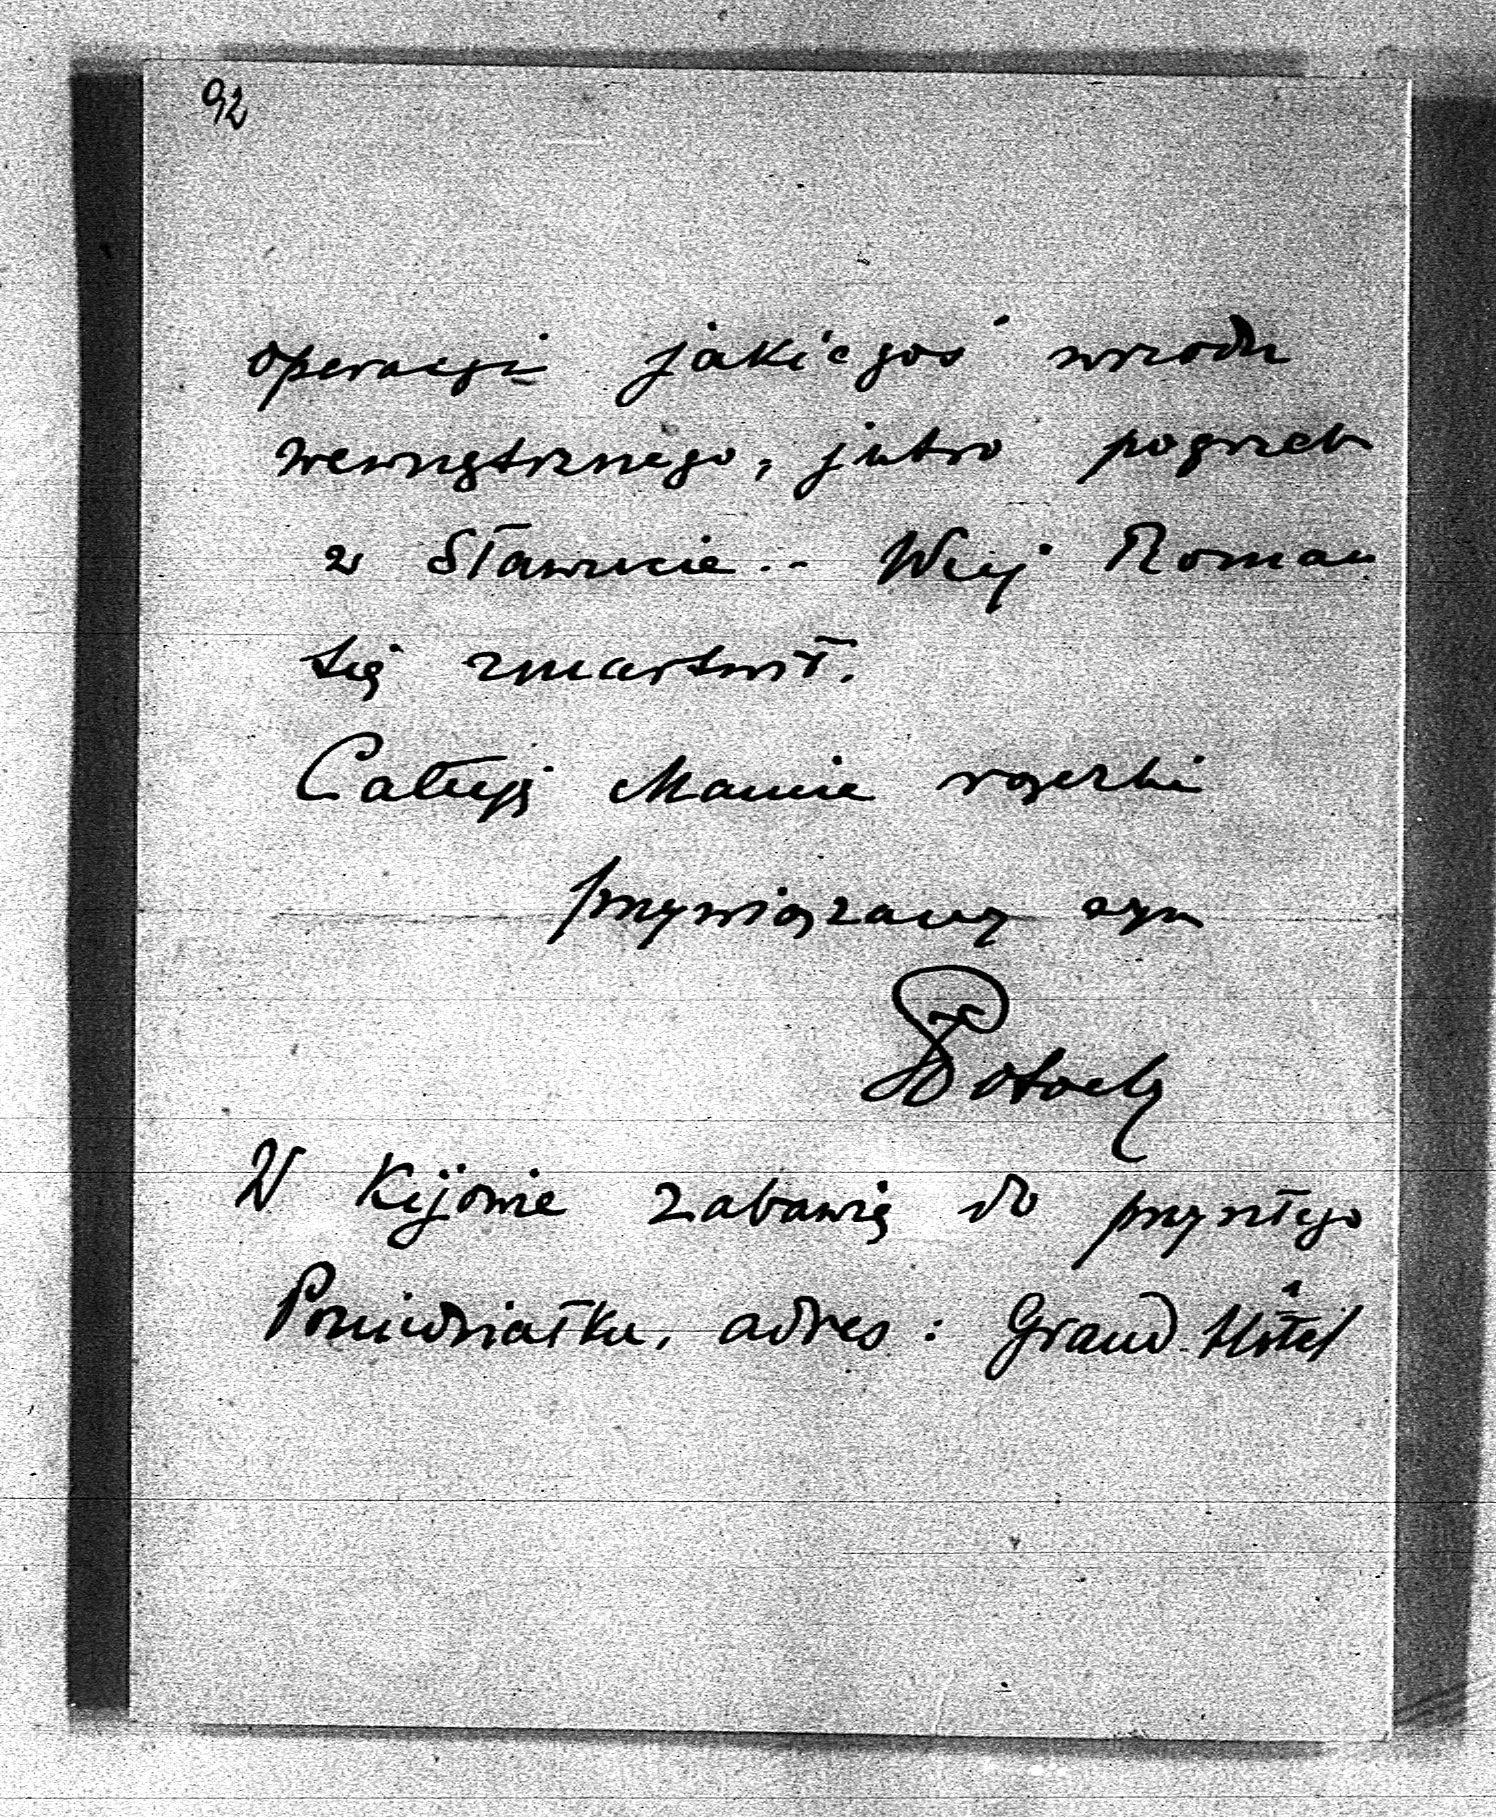 92
operacyi jakiegoś wrzodu
wewnętrznego, jutro pogrzeb
w Sławucie.. Wuj Roman
się zmartwił.
Całuję Mamie rączki
przywiązany syn
JPotocki
W Kijowie zabawię do przyszłego
Poniedziałku, adres: Grand Hôtel